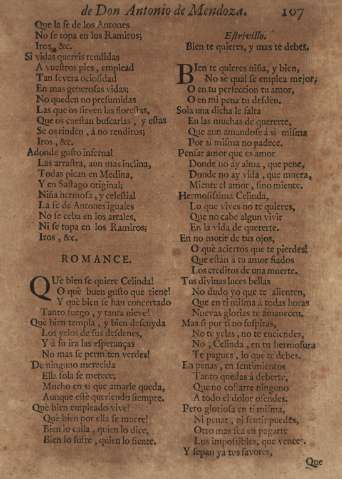 de Don Antonio de Mendoza. 107
Que la fe de los Antones
No se topa en los Ramiros;
Iros, &c.
Si vidas quereis rendidas
A vuestros pies, emplead
Tan severa ociosidad
En mas generosas vidas;
No queden no presumidas
Las que os sirven las florestas,
Que os cuestan buscarlas, y estas
Se os rinden, á no rendiros;
Iros, &c.
Adonde gusto infernal
Las arrastra, aun mas inclina,
Todas pican en Medina,
Y en Sastago original;
Niña hermosa, y celestial
La fe de Antones iguales
No se ceba en los areales,
Ni se topa en los Ramiros;
Iros, &c.
ROMANCE.
QUe bien se quiere Celinda!
O què buen gusto que tiene!
Y què bien se han concertado
Tanto fuego, y tanta nieve!
Que bien templa, y bien descuyda
Los yelos de sus desdenes,
Y á su ira las esperanças
No mas se permiten verdes!
De ninguno merecida
Ella sola se merece;
Mucho en sì que amarle queda,
Aunque estè queriendo siempre.
Què bien empleado vive!
Què bien por ella se muere!
Bien lo calla, quien lo dice,
Bien lo sufre, quien lo siente.
Estrivillo.
Bien te quieres, y mas te debes.
BIen te quieres niña, y bien,
No sè qual se emplea mejor,
O en tu perfeccion tu amor,
O en mi pena tu desden.
Sola una dicha le falta
En las muchas de quererte,
Que aun amandose á sì misma
Por sì misma no padece.
Pensar amor que es amor
Donde no ay alma, que pene,
Donde no ay vida, que muera,
Miente el amor, sino miente.
Hermosissima Celinda,
Lo que vives no te quieres,
Que no cabe algun vivir
En la vida de quererte.
En no morir de tus ojos,
O què aciertos que te pierdes!
Que estàn á tu amor fiados
Los creditos de una muerte.
Tus divinas luces bellas
No dudo yo que te alienten,
Que en tì misma á todas horas
Nuevas glorias te amanecen.
Mas si por tì no suspiras,
No te yelas, no te enciendes,
No, Celinda, en tu hermosura
Te pagues, lo que te debes.
En penas, en sentimientos
Tanto quedas á deberte,
Que no cobarte ninguno
A todo el dolor ofendes.
Pero gloriosa en tì misma,
Ni penar, ni sentir puedes,
Otro mas sea en pagarte
Los imposibles, que vences.
Y sepan ya tus favores,
Que